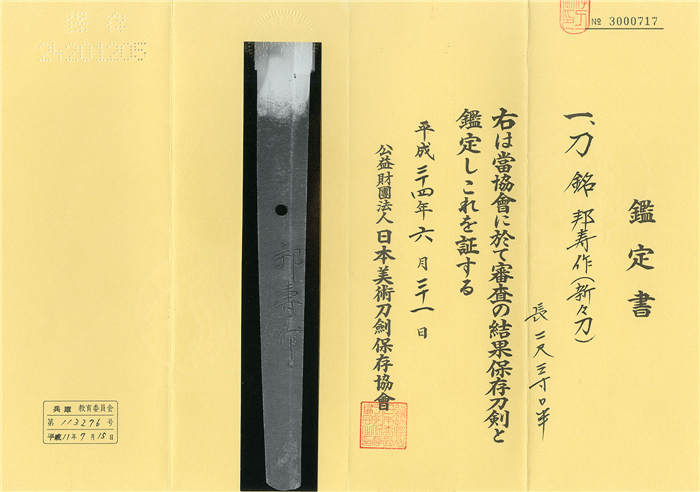 № 3000717
鑑定書
一、刀 銘 邦寿作(新々刀)
長 二尺三寸〇半
右は當協會に於て審査の結果保存刀剣と
鑑定しこれを証する
平成二十四年六月二十一日
公益財團法人 日本美術刀劍保存協會
邦壽作
兵庫 教育委員会
第 113276 号
平成11年7月15日